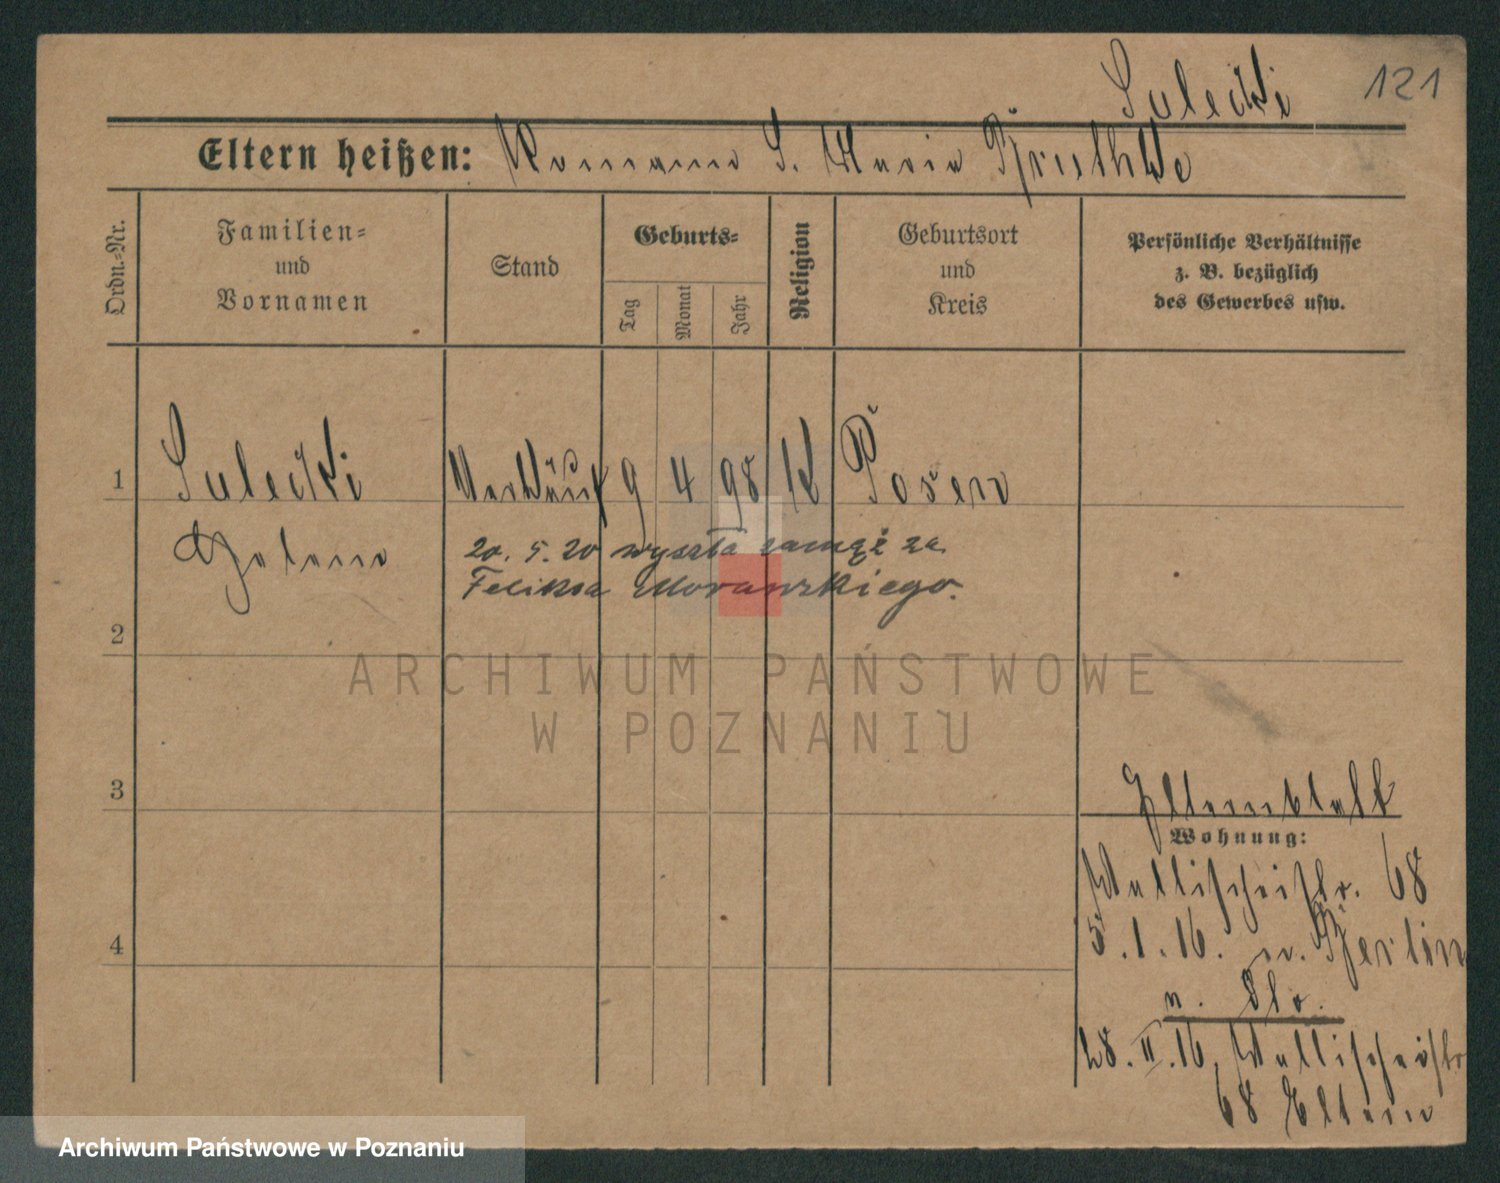 Sulecki
121
Eltern heißen: Roman S. Maria
Ordn.-Nr.
Familien-
und
Vornamen
Stand
Geburts-
Tag
Monat
Jahr
Religion
Geburtsort
und
Kreis
Persönliche Verhältnisse
z. B. bezüglich
des Gewerbes usw.
1
Sulecki
9 4 98 K Posen
Helene
20. 5. 20 wyszła zamąż za
Feliksa Morawskiego.
2
ARCHIWUM PAŃSTWOWE
W POZNANIU
3
Elternblatt
Wohnung:
Wallischeistr. 68
4
5. 1. 16. n. Berlin
28. II. 16. Wallischeistr
68 Eltern
Archiwum Państwowe w Poznaniu